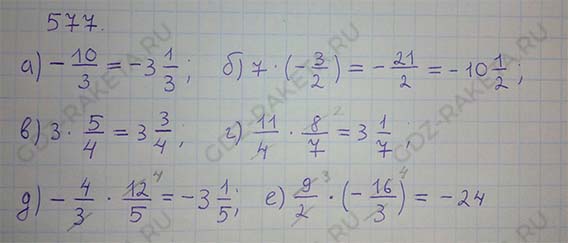 577.
а) -10/3 = -3 1/3; б) 7 · (-3/2) = -21/2 = -10 1/2;
в) 3 · 5/4 = 3 3/4; г) 11/4 · 8/7 2 = 3 1/7;
д) -4/3 · 12/5 4 = -3 1/5; е) 9/2 3 · (-16/3) 4 = -24
GDZ-RAKETA.RU